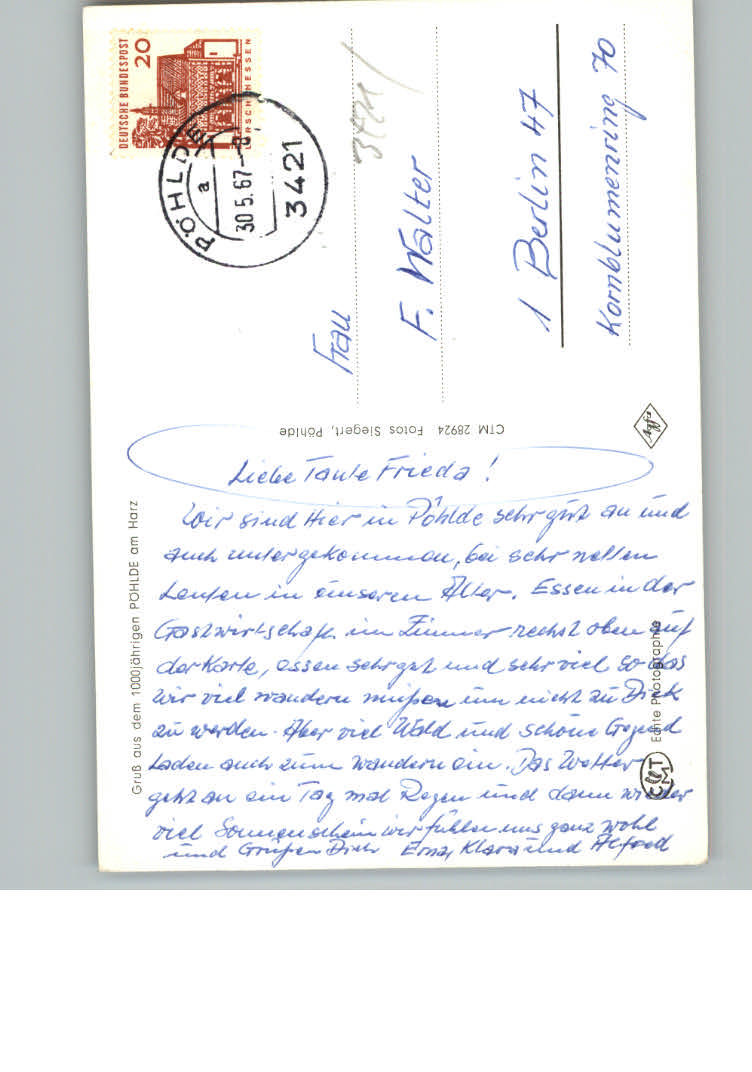 DEUTSCHE BUNDESPOST
20
LORSCH HESSEN
PÖHLDE
a
30.5.67-8
3421
3421/
Frau
F. Walter
1 Berlin 47
Kornblumenring 70
CTM 28924 Fotos Siegert, Pöhlde
Agfa
Gruß aus dem 1000jährigen PÖHLDE am Harz
Echte Photographie
CMT
Liebe Tante Frieda!
Wir sind Hier in Pöhlde sehr gut an und
auch untergekommen, bei sehr netten
Leuten in unseren Alter. Essen in der
Gastwirtschaft im Zimmer rechst oben auf
der Karte, essen sehr gut und sehr viel so das
wir viel wandern müßen um nicht zu Dick
zu werden. Aber viel Wald und schöne Gegend
Laden auch zum wandern ein. Das Wetter
geht an ein Tag mal Regen und dann wieder
viel Sonnenschein wir fühlen uns ganz wohl
und Grüßen Dich Erna, Klara und Alfred